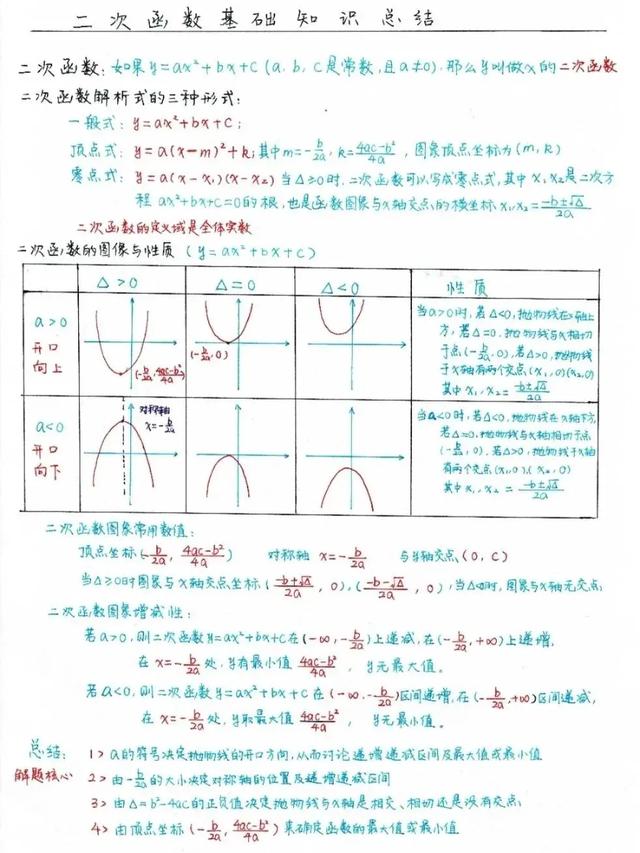 二次函数基础知识总结
二次函数:如果y=ax²+bx+c(a.b,c是常数,且a≠0).那么y叫做x的二次函数
二次函数解析式的三种形式:
一般式:y=ax²+bx+c;
顶点式:y=a(x-m)²+k;其中m=-b/2a,k=4ac-b²/4a,图象顶点坐标为(m,k)
零点式:y=a(x-x₁)(x-x₂)当△≥0时.二次函数可以写成零点式,其中x₁x₂是二次方
程ax²+bx+c=0的根,也是函数图象与x轴交点的横坐标x₁,x₂=-b±√△/2a
二次函数的定义域是全体实数
二次函数的图像与性质(y=ax²+bx+c)
△>0 △=0 △<0 性质
a>0
开口
向上
(-b/2a,4ac-b²/4a)
(-b/2a,0)
当a>0时,若△<0,抛物线在x轴上
方,若△=0.抛物线与x相切
于点(-b/2a,0),若△>0,抛物线
于x轴有两个交点(x₁,0)(x₂,0)
其中x₁,x₂=-b±√△/2a
a<0
开口
向下
对称轴
x=-b/2a
当a<0时,若△<0,抛物线在x轴下方,
若△=0,抛物线与x轴相切于点
(-b/2a,0),若△>0,抛物线于x轴
有两个交点(x₁,0),(x₂,0)
其中x₁,x₂=-b±√△/2a
二次函数图象常用数值:
顶点坐标(-b/2a,4ac-b²/4a) 对称轴 x=-b/2a 与y轴交点(0,c)
当△≥0时图象与x轴交点坐标(-b+√△/2a,0),(-b-√△/2a,0),当△<0时,图象与x轴无交点;
二次函数图象增减性:
若a>0,则二次函数y=ax²+bx+c在(-∞,-b/2a)上递减,在(-b/2a,+∞)上递增,
在x=-b/2a处,y有最小值4ac-b²/4a,y无最大值。
若a<0,则二次函数y=ax²+bx+c在(-∞,-b/2a)区间递增,在(-b/2a,+∞)区间递减,
在x=-b/2a处,y取最大值4ac-b²/4a,y无最小值。
总结: 1>a的符号决定抛物线的开口方向,从而讨论递增递减区间及最大值或最小值
解题核心 2>由-b/2a的大小决定对称轴的位置及递增递减区间
3>由△=b²-4ac的正负值决定抛物线与x轴是相交、相切还是没有交点;
4>由顶点坐标(-b/2a,4ac-b²/4a)来确定函数的最大值或最小值